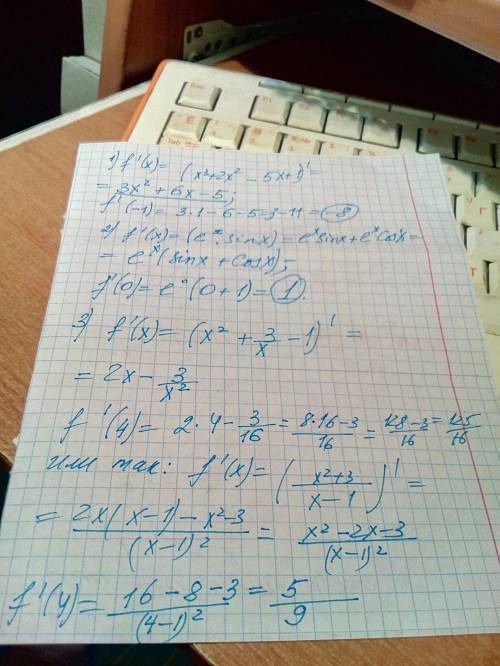 1) f'(x) = (x³+2x² - 5x+1)' =
= 3x² + 6x - 5;
f'(-1) = 3·1 - 6 - 5 = 3 - 11 = -8
2) f'(x) = (eˣ·sinx) = eˣsinx + eˣcosx =
= eˣ(sinx + cosx);
f'(0) = e⁰(0+1) = 1.
3) f'(x) = (x² + 3/x - 1)' =
= 2x - 3/x²
f'(4) = 2·4 - 3/16 = (8·16-3)/16 = (128-3)/16 = 125/16
или так: f'(x) = ((x²+3)/(x-1))' =
= (2x(x-1) - x²-3)/(x-1)² = (x²-2x-3)/(x-1)²
f'(4) = (16-8-3)/(4-1)² = 5/9